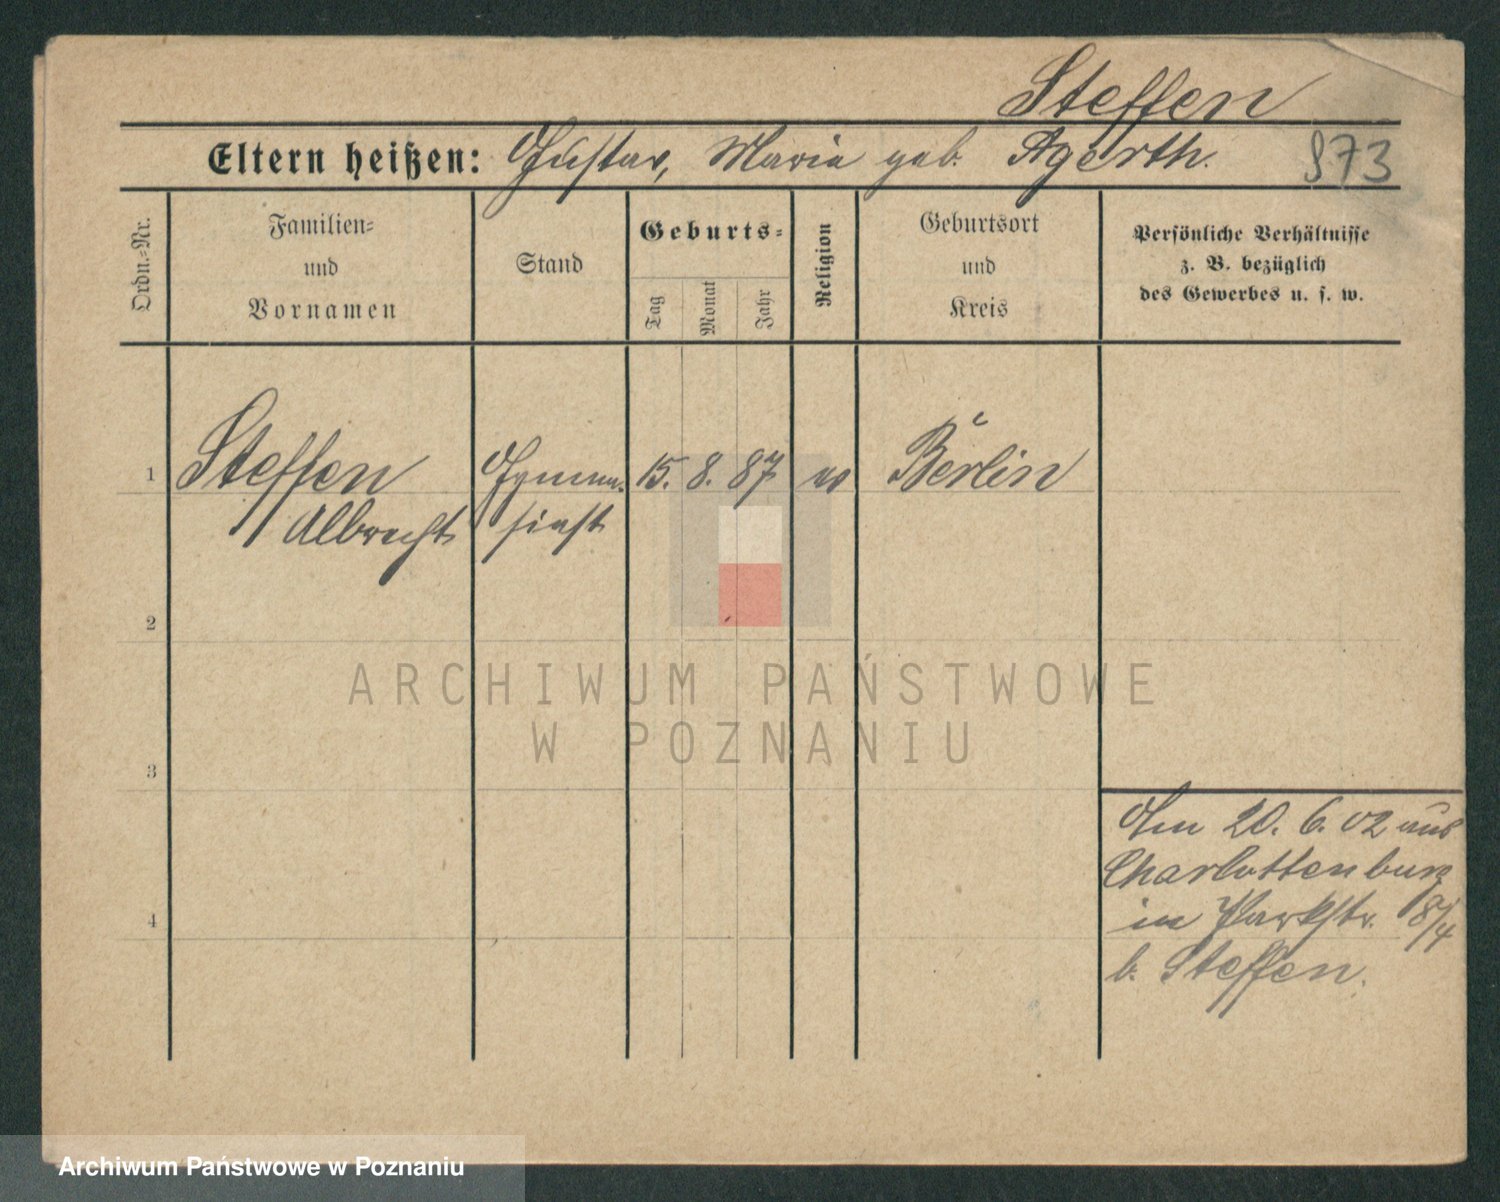 Steffen
Eltern heißen: Gustav, Maria geb. Agerth.
973
Ordn.=Nr.
Familien=
und
Vornamen
Stand
Geburts=
Tag
Monat
Jahr
Religion
Geburtsort
und
Kreis
Persönliche Verhältnisse
z. B. bezüglich
des Gewerbes u. s. w.
1 Steffen Gymna- 15. 8. 87 ev Berlin
Albrecht siast
2
3
4
Am 20. 6. 02 aus
Charlottenburg
in Parkstr. 8/4
b. Steffen.
ARCHIWUM PAŃSTWOWE
W POZNANIU
Archiwum Państwowe w Poznaniu